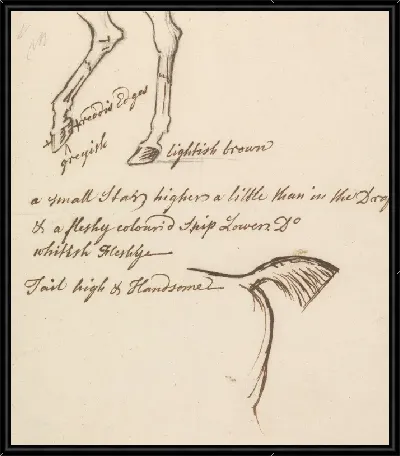 reddis Edges
greyish
lightish brown
a small Star higher a little than in the
& a fleshy colour'd Snip Lower Do
whitish Fleshye
Tail high & Handsome